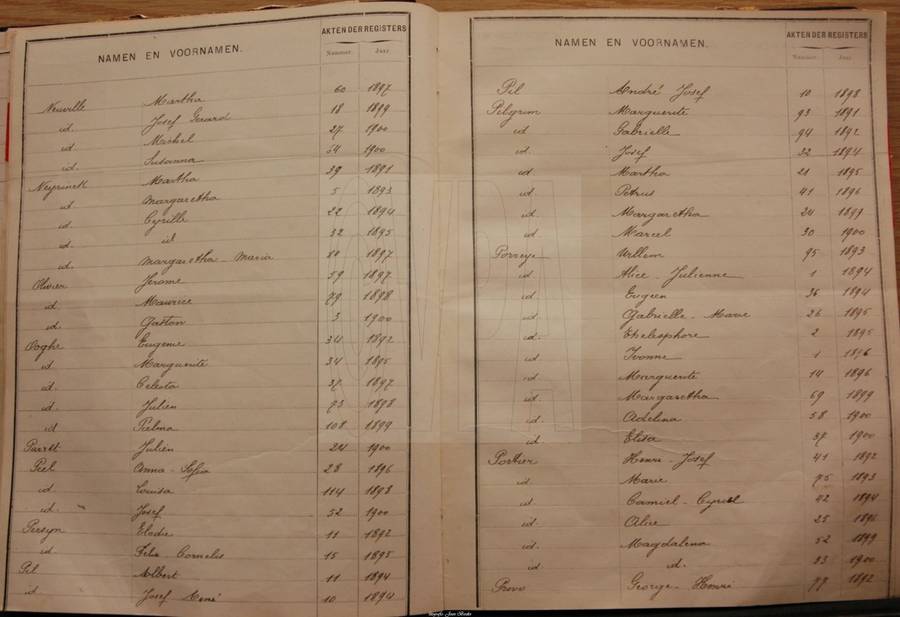 NAMEN EN VOORNAMEN. AKTEN DER REGISTERS
Nummer. Jaar.
Neuville Martha 60 1897
id. Josef Gerard 18 1899
id. Michel 27 1900
id. Susanna 64 1900
Neyrinck Martha 39 1891
id Margaretha 5 1893
id. Cyrille 22 1894
id. id 32 1895
id. Margaretha - Maria 80 1897
Olivier Jerome 59 1897
id. Maurice 79 1898
id. Gaston 3 1900
Ooghe Eugenie 34 1892
id. Marguerite 34 1895
id. Celesta 37 1897
id. Julien 73 1898
id Palma 108 1899
Julien 24 1900
Peel Anna - Sofia 28 1896
id. Louisa 114 1898
id. Josef 52 1900
Persyn Elodie 11 1892
id. Felix Cornelis 15 1895
Pil Albert 11 1894
id Josef René 10 1894
NAMEN EN VOORNAMEN. AKTEN DER REGISTERS
Nummer. Jaar.
Pil André Josef 10 1898
Pelgrim Marguerite 93 1891
id Gabrielle 94 1892
id. Josef 32 1894
id. Martha 21 1895
id Petrus 41 1896
id. Margaretha 24 1899
id. Marcel 30 1900
Porreye Willem 95 1893
id. Alice - Julienne 1 1894
id. Eugeen 36 1894
id. Gabrielle - Marie 26 1895
id. Thelesphore 2 1895
id Ivonne 1 1896
id. Marguerite 14 1896
id. Margaretha 69 1899
id. Adelina 58 1900
id Elisa 37 1900
Portier Henri - Josef 41 1892
id Marie 75 1893
id. Camiel - Cyriel 42 1894
id. Alice 25 1896
id. Magdalena 52 1899
id id. 83 1900
Provo George - Henri 77 1892